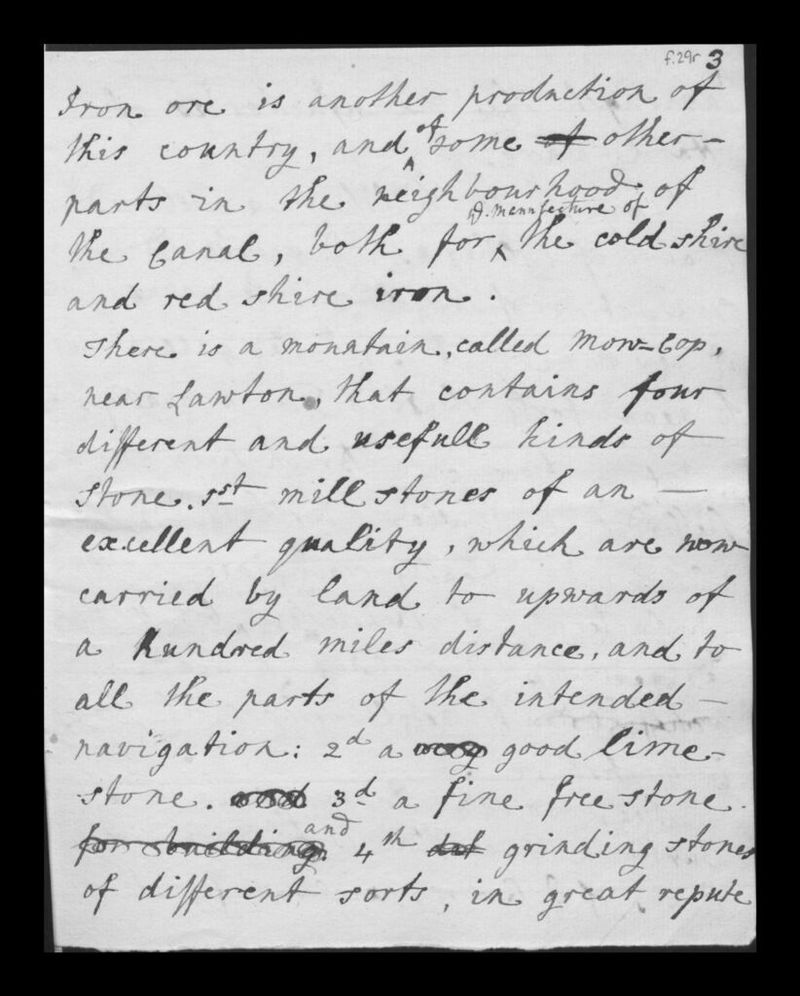 f.29r 3
Iron ore is another production of
this country, and of some of other
parts in the neighbourhood of
ye. mannfecture of
the Canal, both for the cold shire
and red shire iron.
There is a mountain, called Mow-Cop,
near Lawton, that contains four
different and usefull kinds of
stone. 1st mill stones of an —
excellent quality, which are now
carried by land to upwards of
a hundred miles distance, and to
all the parts of the intended —
navigation: 2d a very good lime-
stone. and 3d a fine free stone.
for building. and 4th grinding stones
of different sorts, in great repute